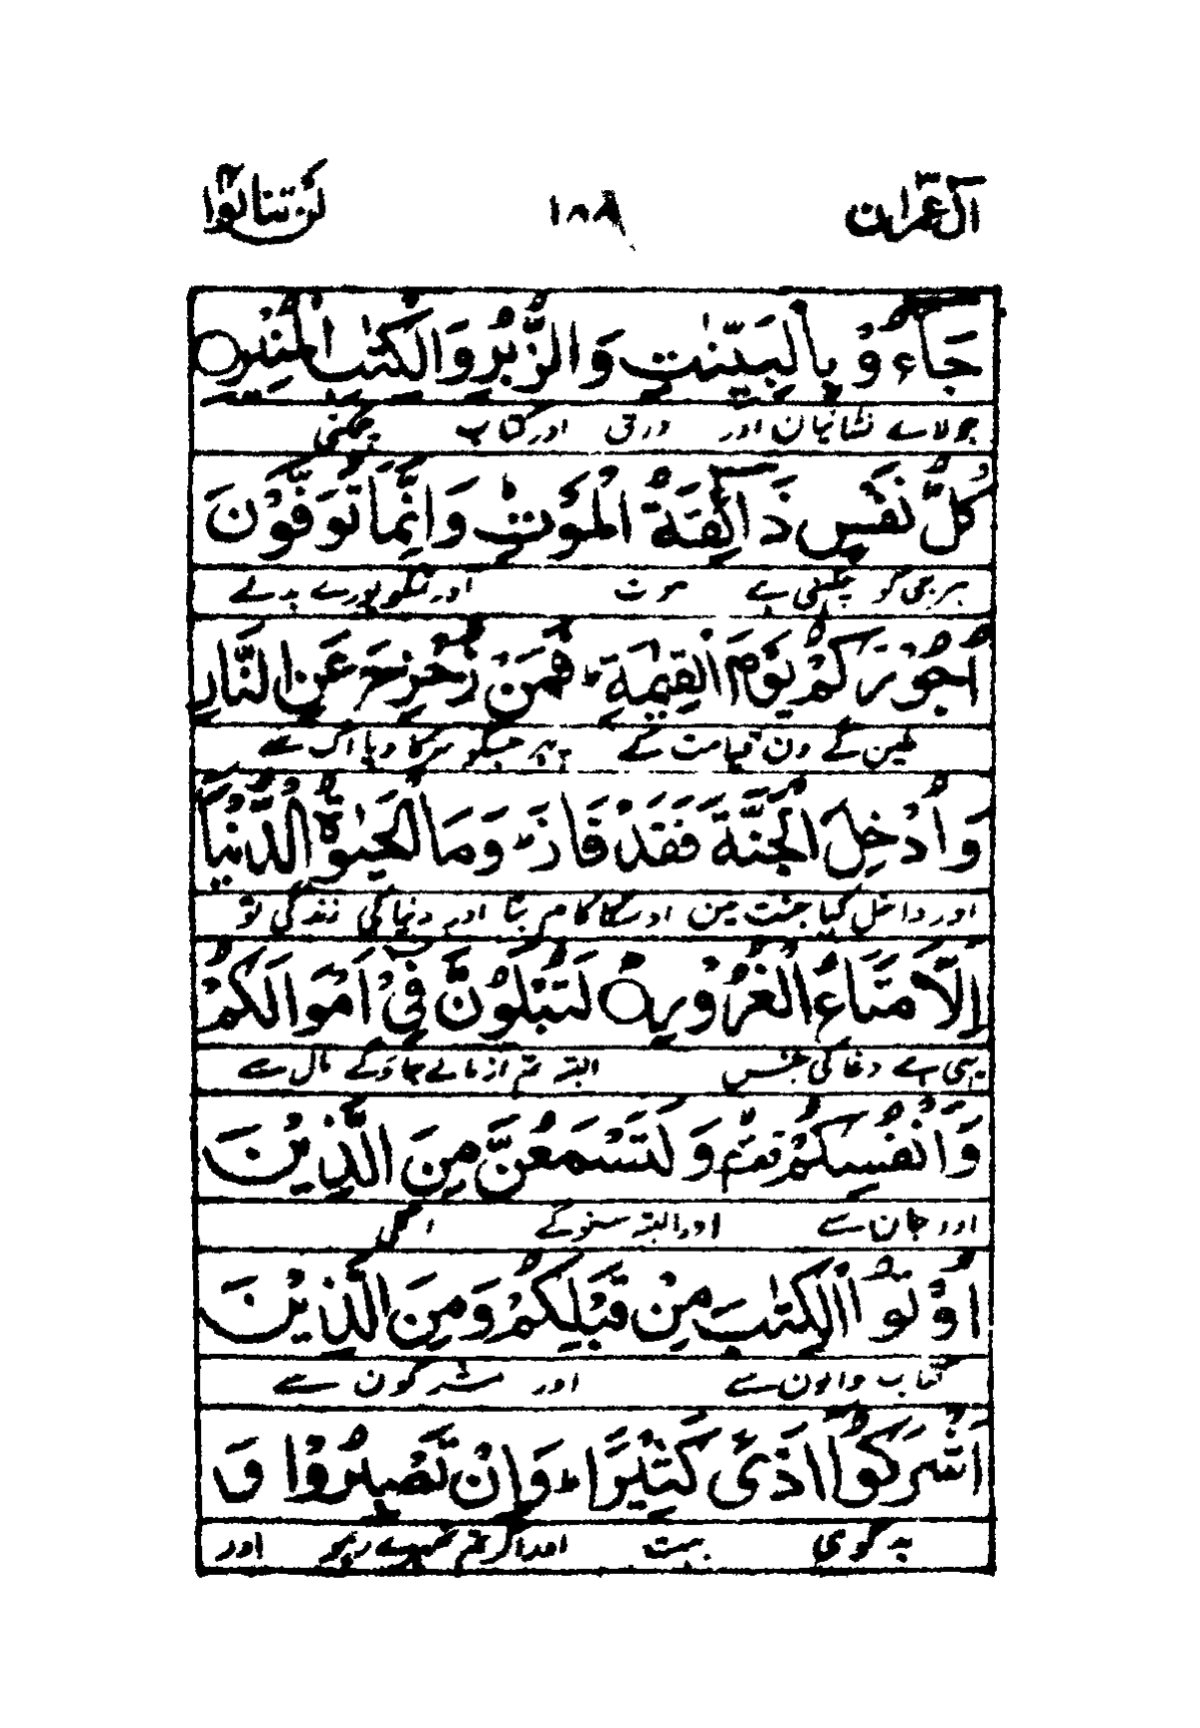 آل عمران ١٨٨ لن تنالوا
جَآءُوْ بِالْبَيِّنٰتِ وَالزُّبُرِ وَالْكِتٰبِ الْمُنِيْرِ ○
جو لاے نشانیان اور ورق اور کتاب چمکنی
كُلُّ نَفْسٍ ذَآئِقَةُ الْمَوْتِ ؕ وَاِنَّمَا تُوَفَّوْنَ
ہر جی کو چکہنی ہے موت اور تمکو پورے بدلے
اُجُوْرَكُمْ يَوْمَ الْقِيٰمَةِ ؕ فَمَنْ زُحْزِحَ عَنِ النَّارِ
ملین گے دن قیامت کے پہر جسکو سرکا دیا اگ سے
وَاُدْخِلَ الْجَنَّةَ فَقَدْ فَازَ ؕ وَمَا الْحَيٰوةُ الدُّنْيَآ
اور داخل کیا جنت مین اوسکا کام بنا اور دنیا کی زندگی تو
اِلَّا مَتَاعُ الْغُرُوْرِ ○ لَتُبْلَوُنَّ فِيْٓ اَمْوَالِكُمْ
یہی ہے دغا کی جنس البتہ تم ازمائے جاؤگے مال سے
وَاَنْفُسِكُمْ وَلَتَسْمَعُنَّ مِنَ الَّذِيْنَ
اور جان سے اور البتہ سنوگے اگلی
اُوْتُوا الْكِتٰبَ مِنْ قَبْلِكُمْ وَمِنَ الَّذِيْنَ
کتاب والون سے اور مشرکون سے
اَشْرَكُوْٓا اَذًى كَثِيْرًا ؕ وَاِنْ تَصْبِرُوْا وَ
بدگوی بہت اور اگر تم ٹھہرے رہو اور